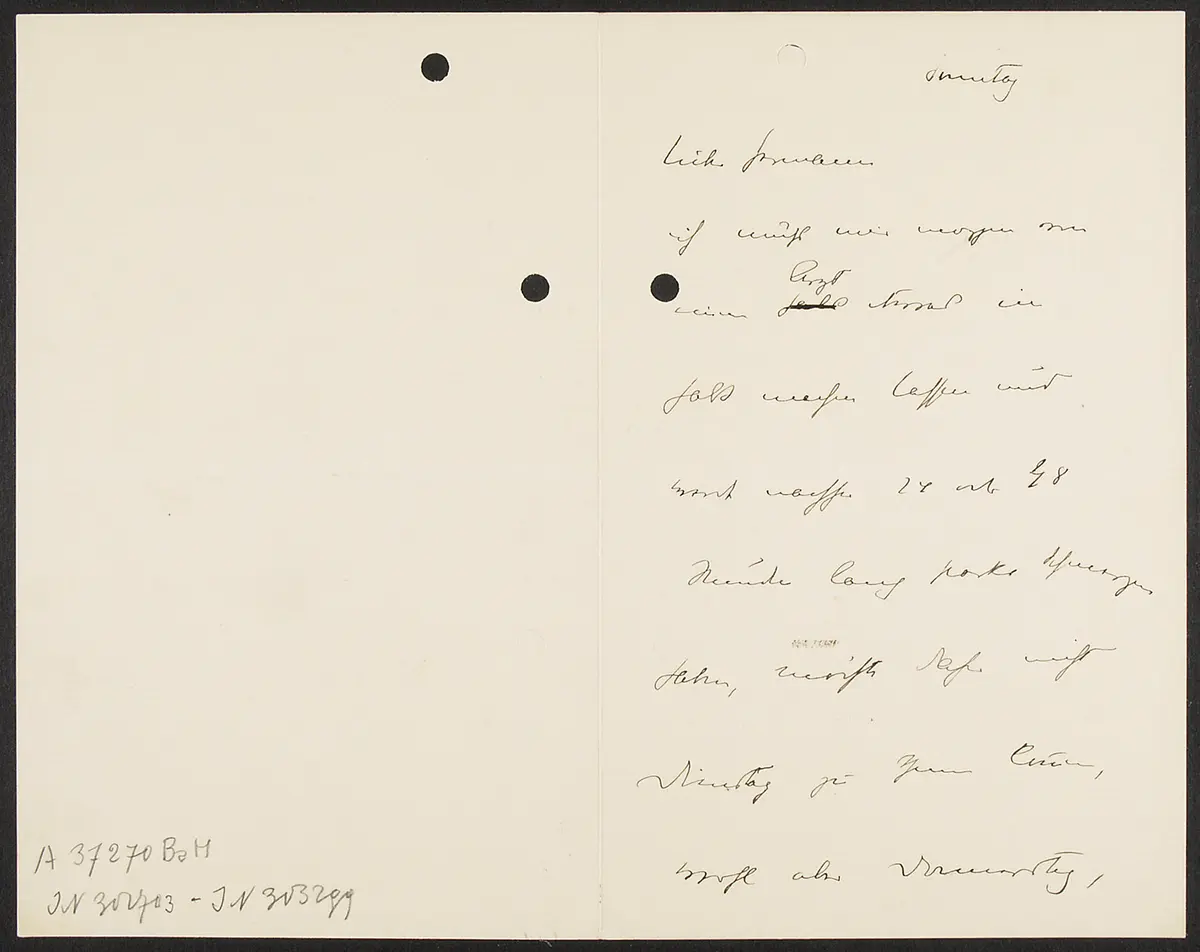 Sonntag
Lieber Hermann
ich muß mir morgen von
Arzt
einem etwas im
Hals machen lassen und
werde nachher 24 oder 48
Stunden lang starke Schmerzen
haben, möchte daher nicht
Dienstag zu Ihnen kommen,
wohl aber Donnerstag,
A 37270 BaM
IN 302703 - IN 303299